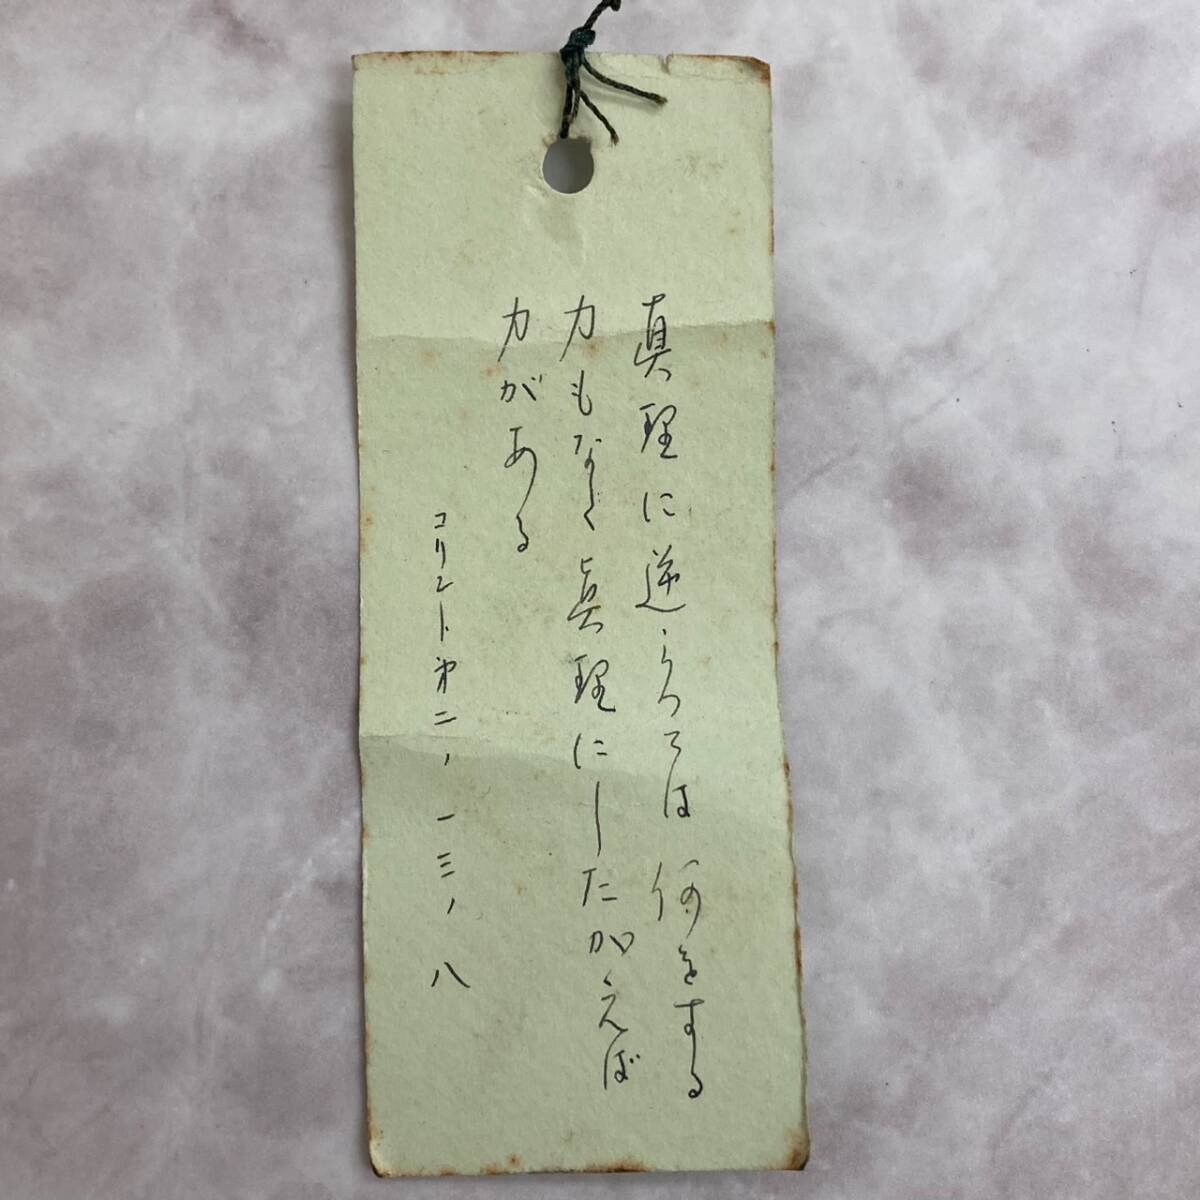 真理に逆らっては何をする
力もなく真理にしたがえば
力がある
コリント第二、一三、八